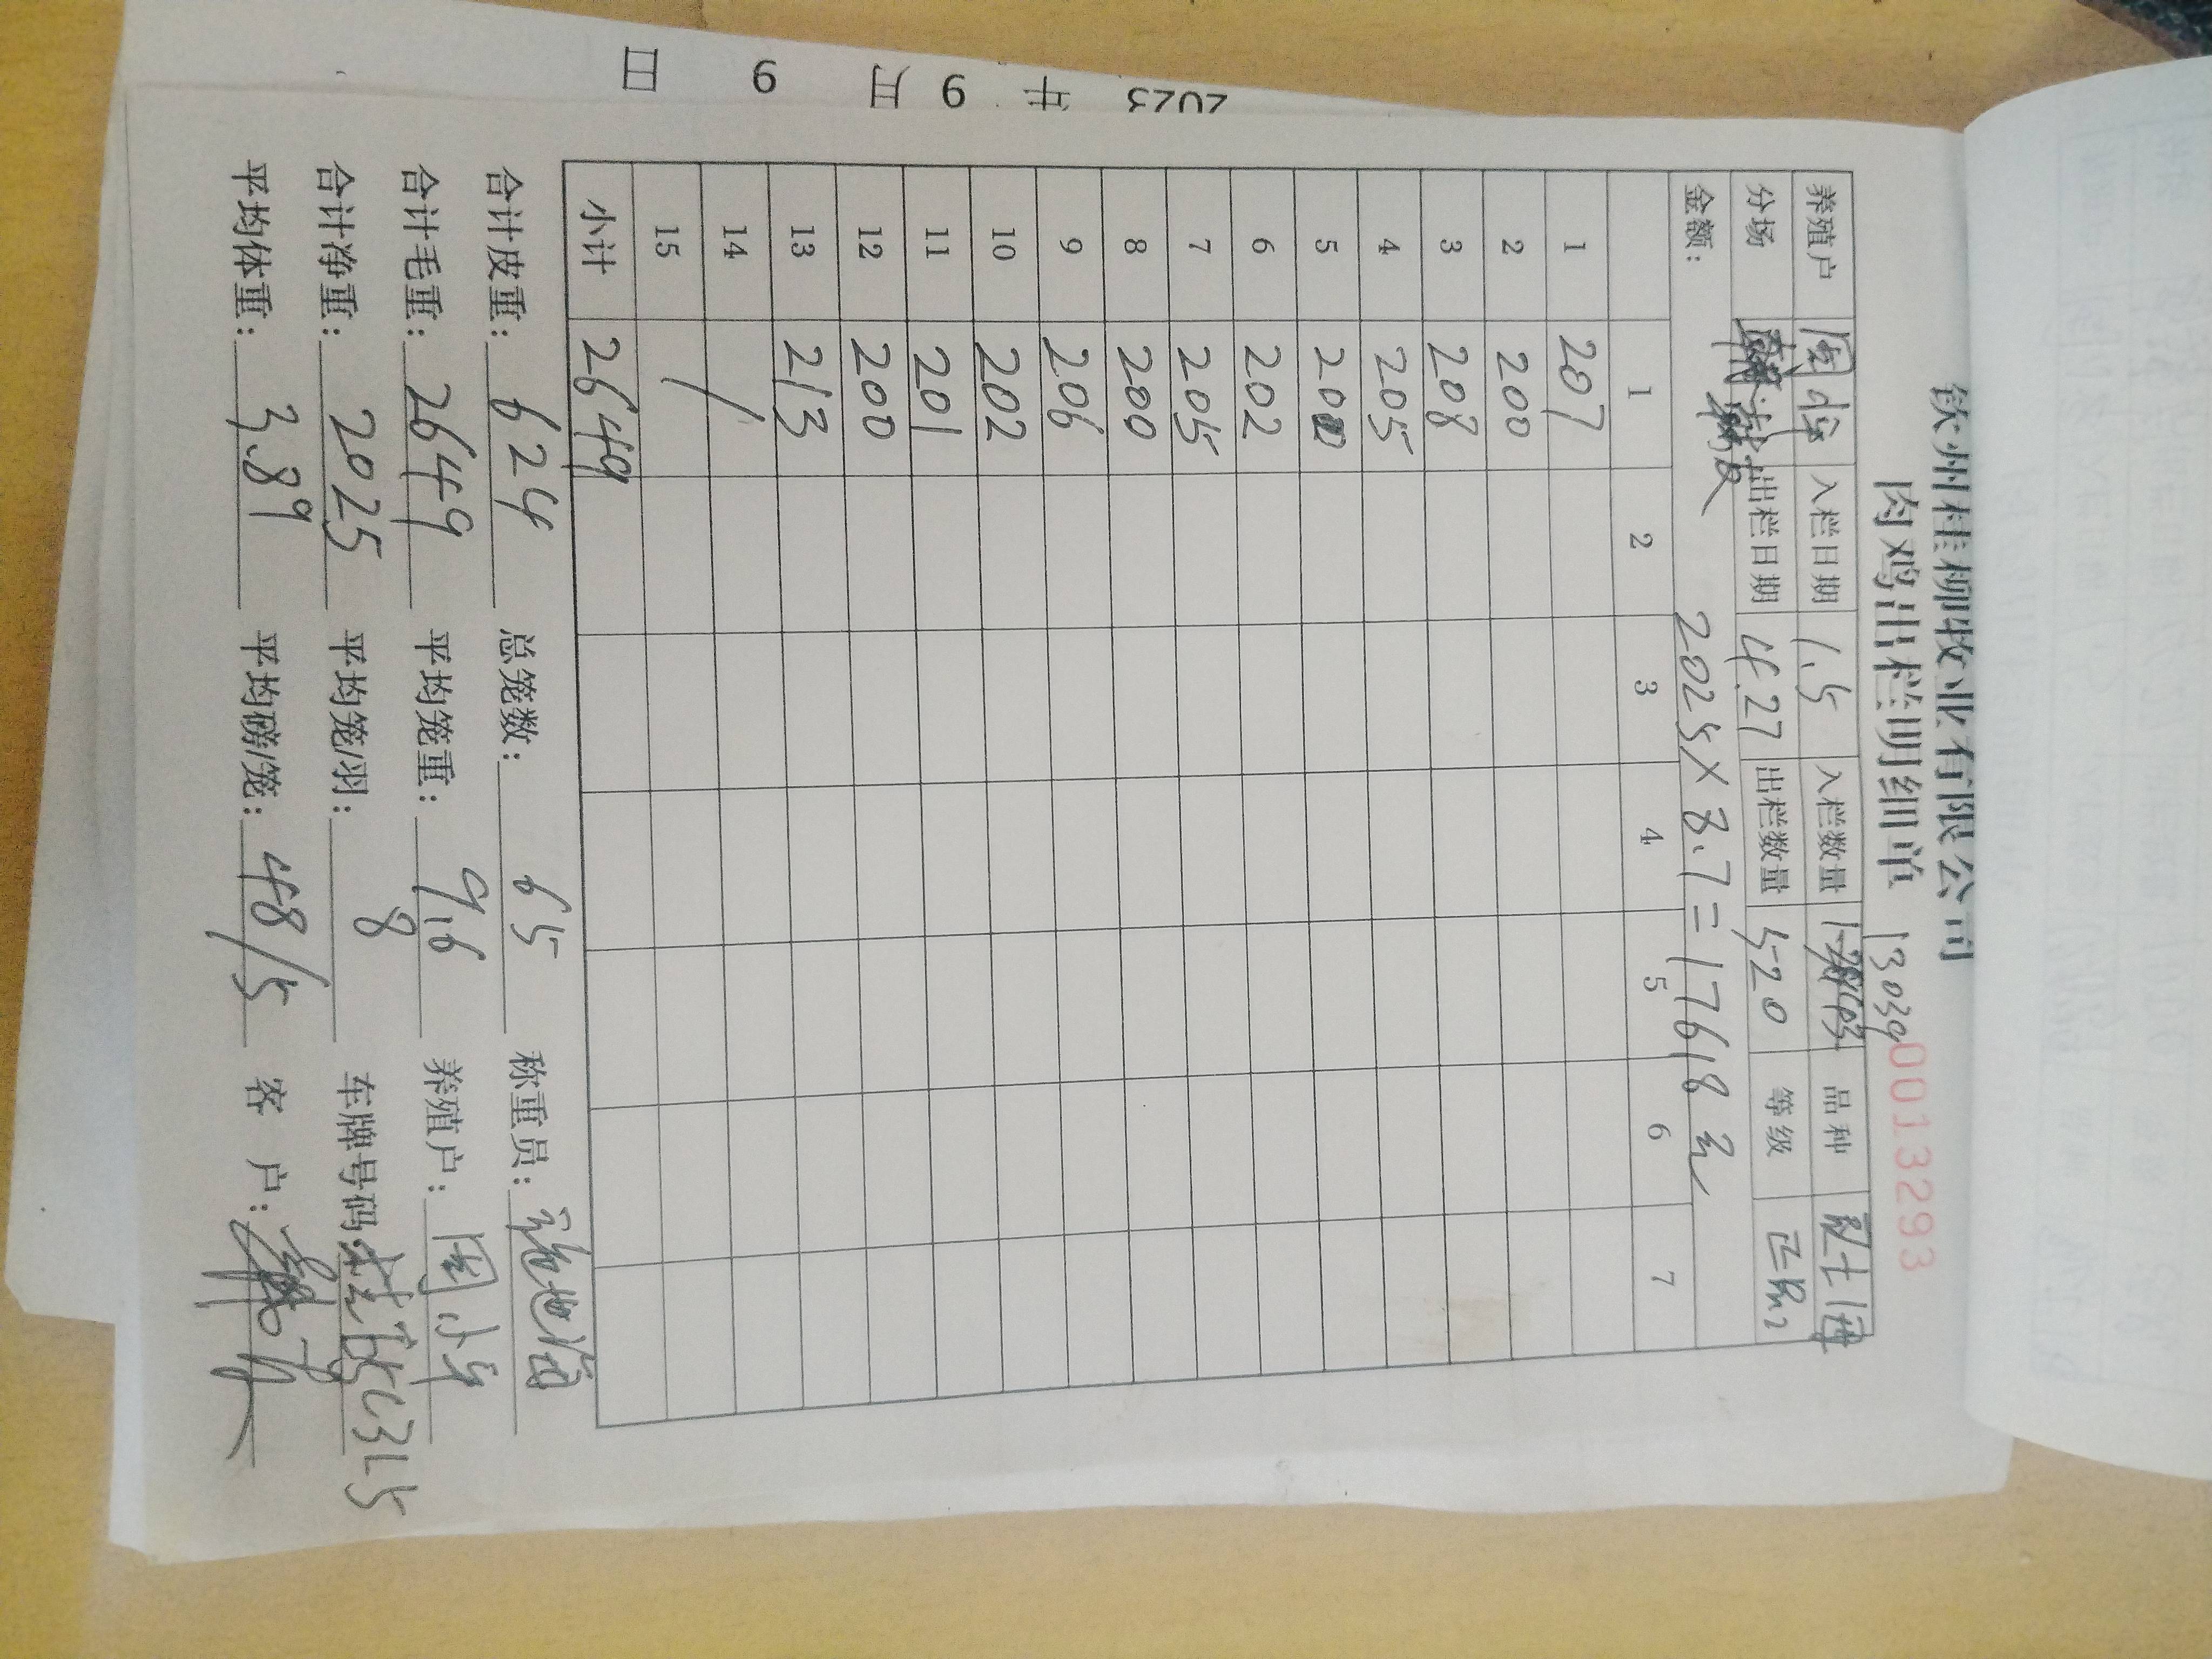 钦州桂柳牧业有限公司
肉鸡出栏明细单 13039 00132993
养殖户 周 入栏日期 1.5 入栏数量 品种
分场 出栏日期 4.27 出栏数量 520 等级
金额： 2025×8.7=17618元
1 2 3 4 5 6 7
1 207
2 200
3 208
4 205
5 200
6 202
7 205
8 200
9 206
10 202
11 201
12 200
13 213
14 /
15 /
小计 2649
合计皮重：624 总笼数：65 称重员：
合计毛重：2649 平均笼重：9.6 养殖户：周小
合计净重：2025 平均笼/羽：8 车牌号码： C315
平均体重：3.89 平均磅/笼：48/5 客 户：
2023 年 9 月 9 日